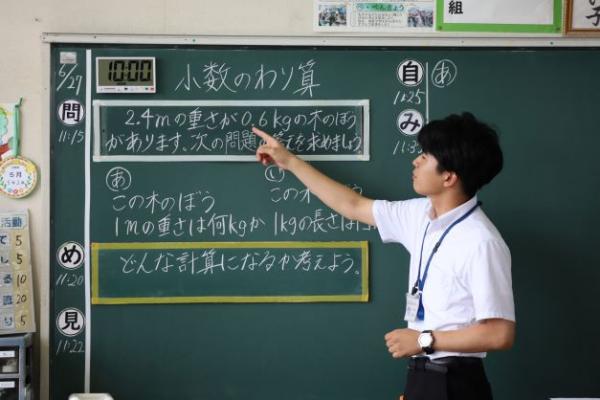 組
6/27
10:00
小数のわり算
自
あ
11:25
問
11:15
2.4mの重さが0.6kgの木のぼう
があります。次の問題の答えを求めましょう
み
あ
この木のぼう
1mの重さは何kgか
この木
1kgの長さは
め
11:20
どんな計算になるか考えよう。
見
11:22
5月
活動
5
5
10
20
5